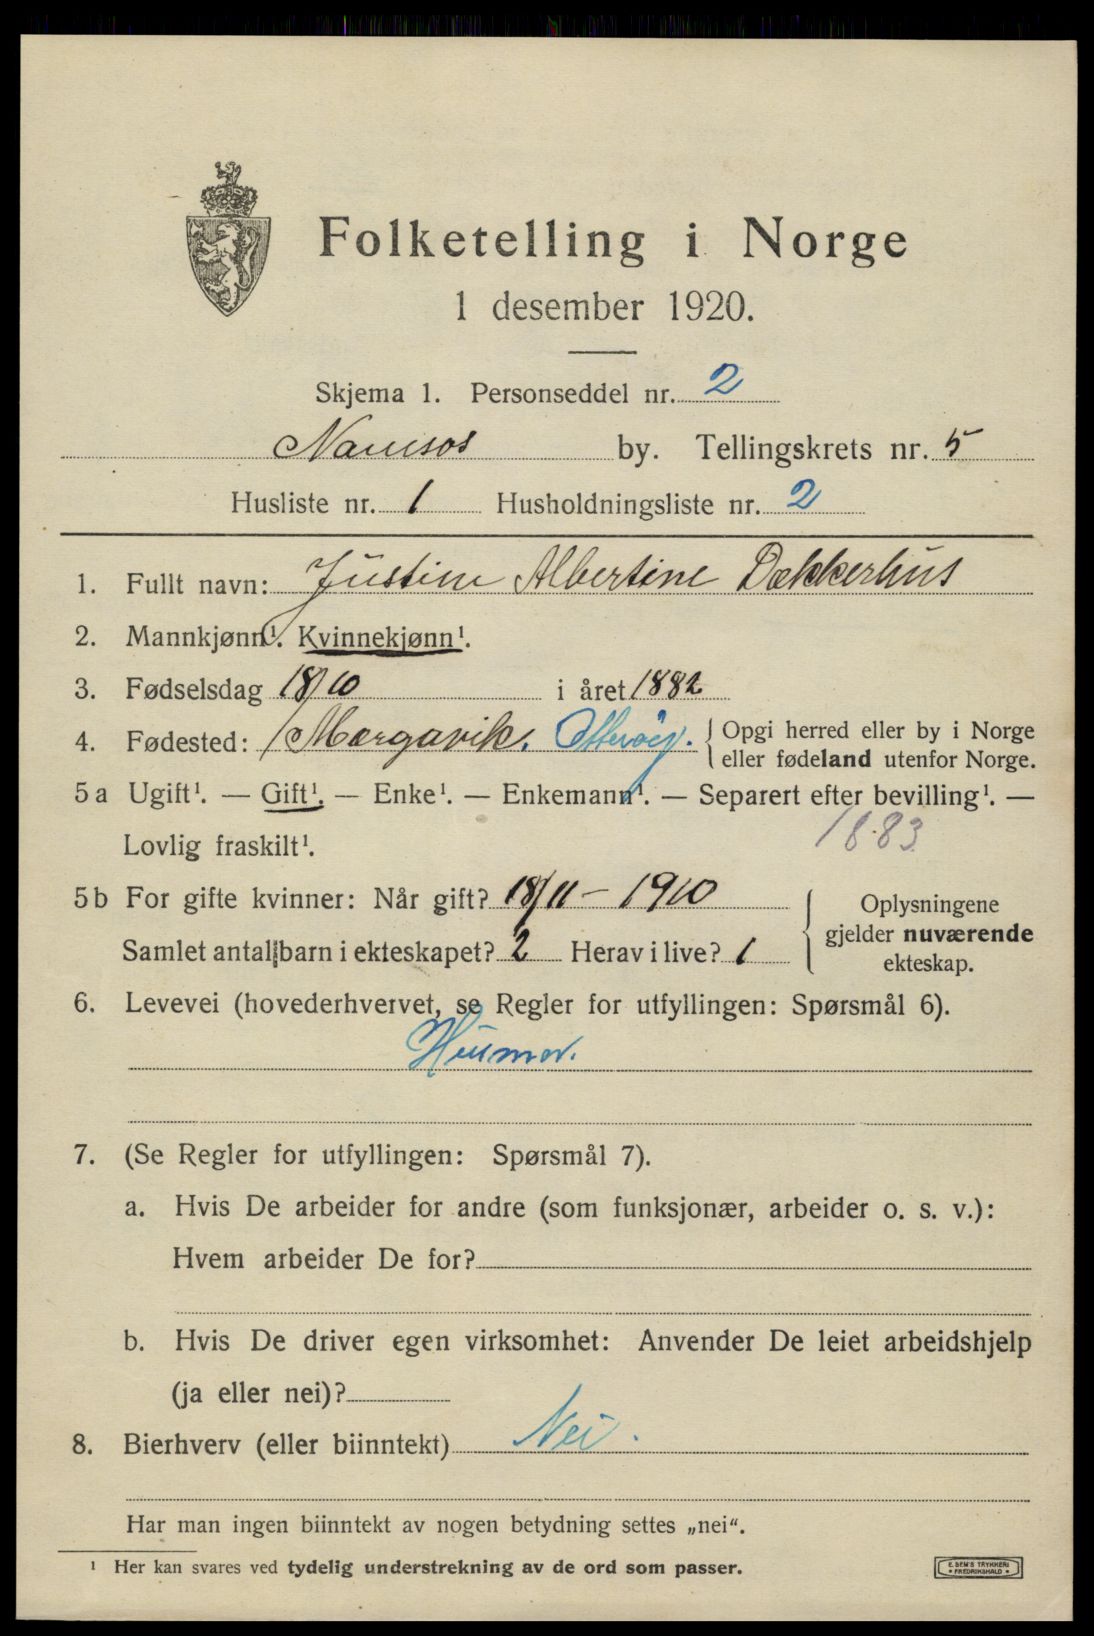 Folketelling i Norge
1 desember 1920.
Skjema 1. Personseddel nr. 2
Namsos by. Tellingskrets nr. 5
Husliste nr. 1 Husholdningsliste nr. 2
1. Fullt navn: Justine Albertine Dækkerhus
2. Mannkjønn¹. Kvinnekjønn¹.
3. Fødselsdag 18/10 i året 1882
4. Fødested: Margavik. Otterøy. { Opgi herred eller by i Norge
eller fødeland utenfor Norge.
5a Ugift¹. — Gift¹. — Enke¹. — Enkemann¹. — Separert efter bevilling¹. —
Lovlig fraskilt¹. 1883
5b For gifte kvinner: Når gift? 18/11 - 1910
Samlet antal barn i ekteskapet? 2 Herav i live? 1
} Oplysningene
gjelder nuværende
ekteskap.
6. Levevei (hovederhvervet, se Regler for utfyllingen: Spørsmål 6).
Husmor.
7. (Se Regler for utfyllingen: Spørsmål 7).
a. Hvis De arbeider for andre (som funksjonær, arbeider o. s. v.):
Hvem arbeider De for?
b. Hvis De driver egen virksomhet: Anvender De leiet arbeidshjelp
(ja eller nei)?
8. Bierhverv (eller biinntekt) Nei.
Har man ingen biinntekt av nogen betydning settes „nei“.
¹ Her kan svares ved tydelig understrekning av de ord som passer.
E. SEM'S TRYKKERI
* FREDRIKSHALD *